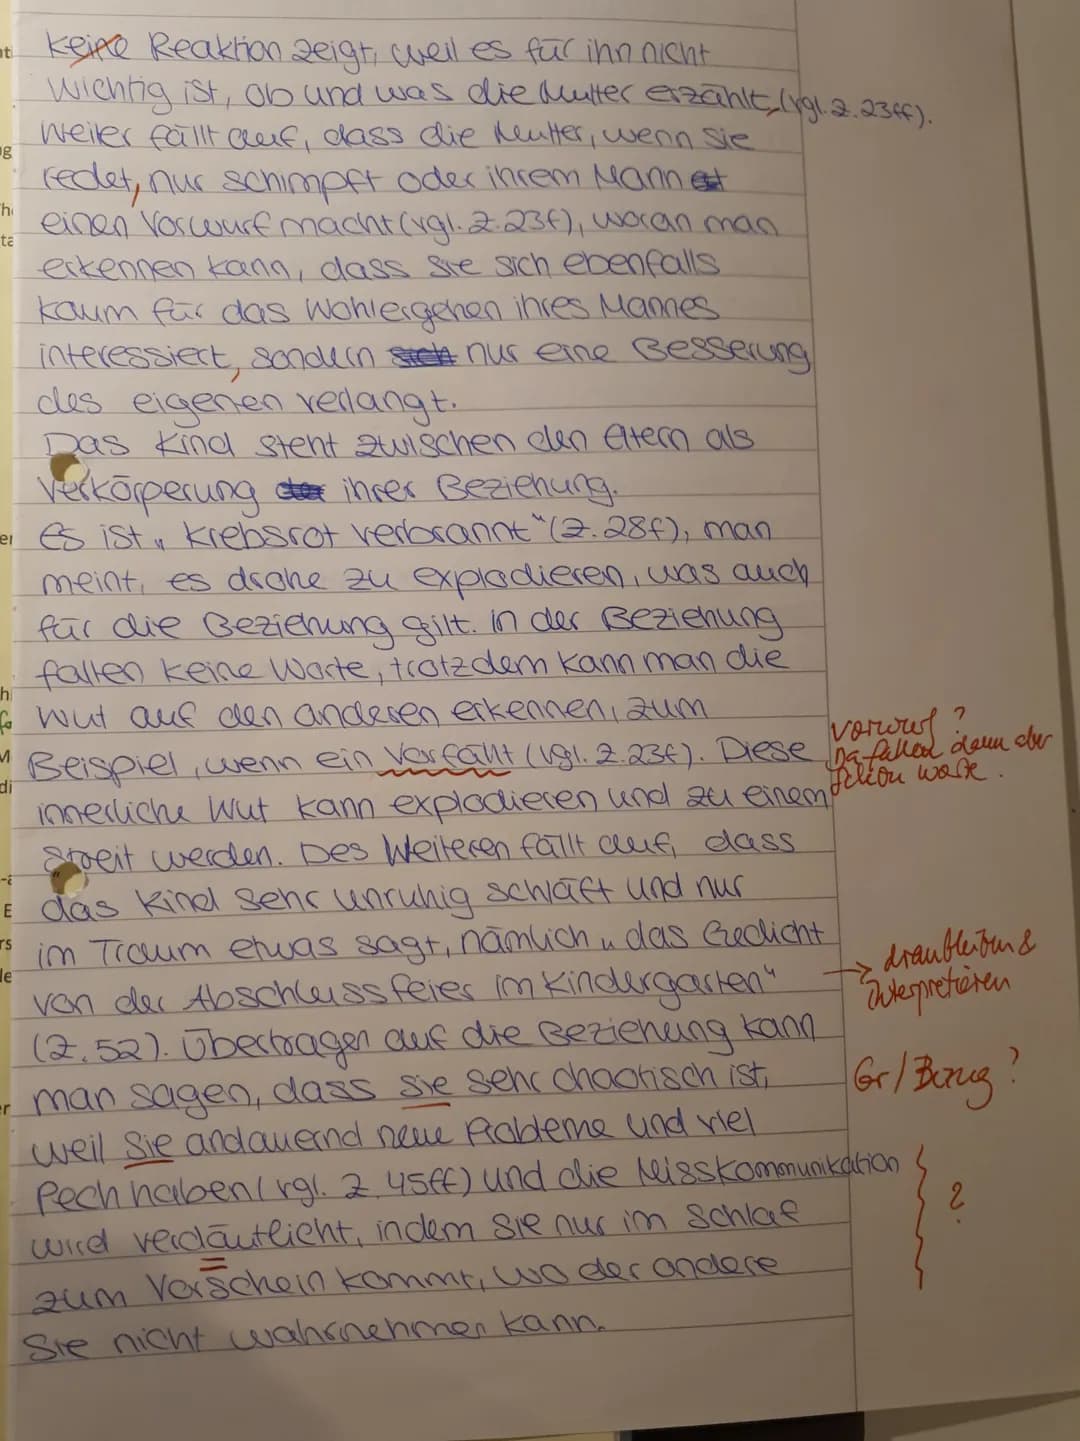 keine Reaktion zeigt, weil es für ihn nicht
wichtig ist, ob und was die Mutter erzählt (vgl. Z. 23ff).
Weiter fällt auf, dass die Mutter, wenn sie
redet, nur schimpft oder ihrem Mann
einen Vorwurf macht (vgl. Z. 23f), woran man
erkennen kann, dass sie sich ebenfalls
kaum für das Wohlergehen ihres Mannes
interessiert, sondern sich nur eine Besserung
des eigenen verlangt.
Das Kind steht zwischen den Eltern als
Verkörperung der ihrer Beziehung.
Es ist „krebsrot verbrannt" (Z. 28f), man
meint, es drohe zu explodieren, was auch
für die Beziehung gilt. In der Beziehung
fallen keine Worte, trotzdem kann man die
Wut auf den anderen erkennen, zum
Beispiel, wenn ein Vorfällt (vgl. Z. 23f). Diese
Vorwurf?
Da fallen dann aber
schon Worte.
innerliche Wut kann explodieren und zu einem
Streit werden. Des Weiteren fällt auf, dass
das Kind sehr unruhig schläft und nur
im Traum etwas sagt, nämlich „das Gedicht
von der Abschlussfeier im Kindergarten"
→ dranbleiben &
interpretieren
(Z. 52). Übertragen auf die Beziehung kann
man sagen, dass sie sehr chaotisch ist,
Gr/Bezug?
weil sie andauernd neue Probleme und viel
Pech haben (vgl. Z. 45ff) und die Misskommunikation
wird verdäutlicht, indem sie nur im Schlaf
?
zum Vorschein kommt, wo der andere
sie nicht wahrnehmen kann.